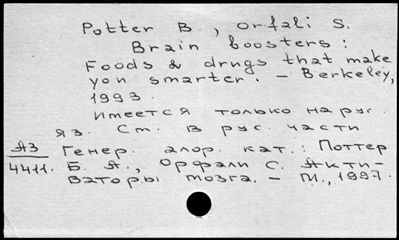 Potter B., Orfali S.
Brain boosters:
Foods & drugs that make
you smarter. – Berkeley,
1993
Имеется только на рус.
яз. См. в рус. части
Генер. алф. кат.: Поттер
А3
4411. Б. А., Орфали С. Акти-
ваторы мозга. – М., 1997.